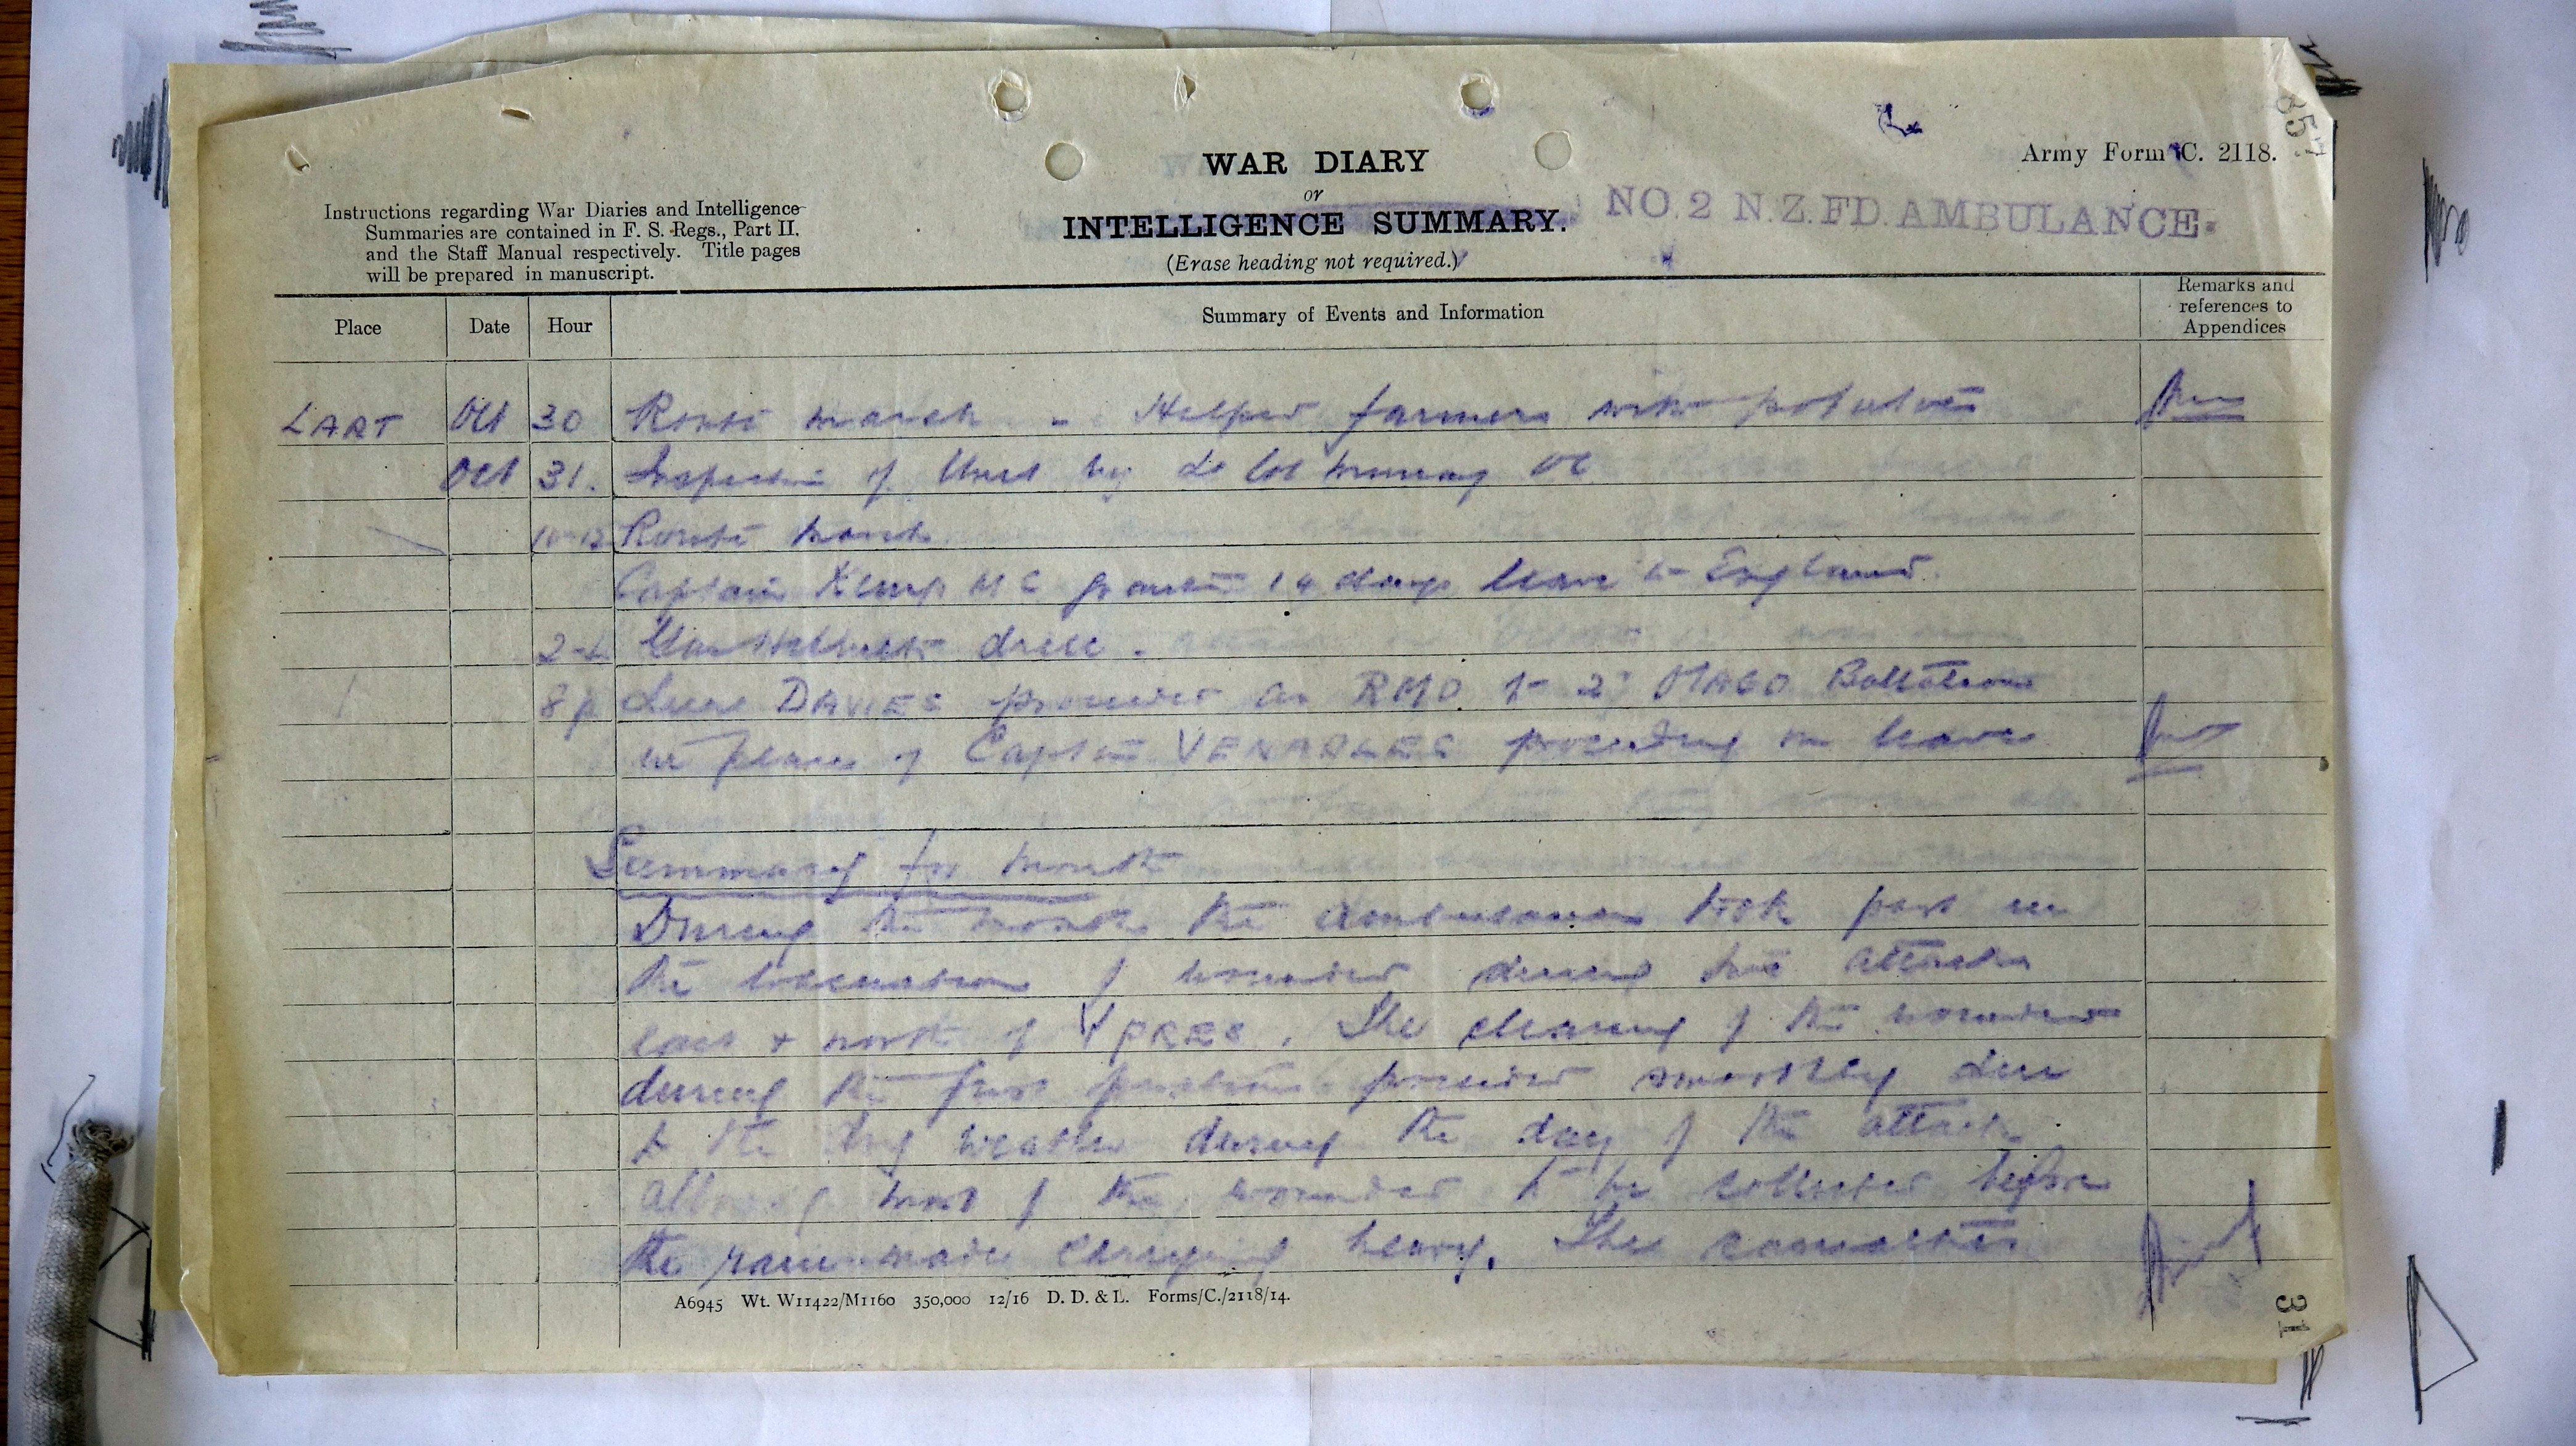 857
Army Form C. 2118.
WAR DIARY
or
INTELLIGENCE SUMMARY.
NO. 2 N.Z. FD. AMBULANCE.
(Erase heading not required.)
Instructions regarding War Diaries and Intelligence
Summaries are contained in F. S. Regs., Part II.
and the Staff Manual respectively. Title pages
will be prepared in manuscript.
Place Date Hour Summary of Events and Information Remarks and references to Appendices
LART Oct 30 Route march - Helped farmers with potatoes
Oct 31. Inspection of Unit by Lt Col Murray OC
10-12 Route march
Captain Kemp MC granted 14 days leave to England.
2-4 Gas Helmet drill.
8 p Lieut DAVIES proceeded as RMO to 2 OTAGO Battalion
in place of Captain VENABLES proceeding on leave
Summary for month
During the month the ambulance took part in
the evacuation of wounded during two attacks
east & north of YPRES. The clearing of the wounded
during the first proceeded smoothly due
to the dry weather during the day of the attack
allowing most of the wounded to be collected before
the rain made carrying heavy. The casualties
A6945 Wt. W11422/M1160 350,000 12/16 D. D. & L. Forms/C./2118/14.
31